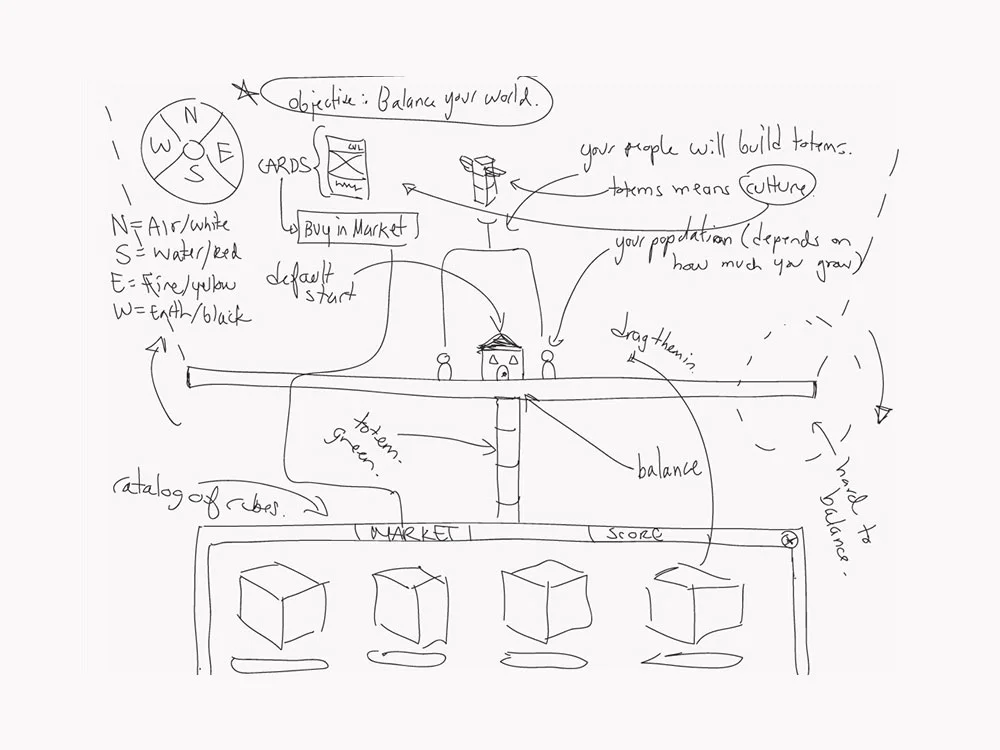 objective: Balance your world.
N
W
E
S
CARDS
LVL
your people will build totems.
totems means culture.
N = Air/white
S = Water/Red
E = Fire/yellow
W = Earth/black
Buy in Market
your population (depends on
how much you grow)
default
start
drag them in
totem.
green.
balance
catalog of cubes.
hard to
balance.
MARKET
SCORE
x